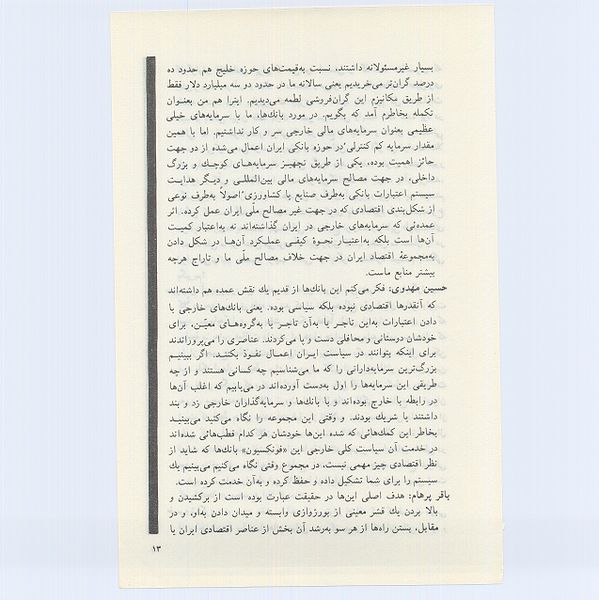 بسیار غیرمسئولانه داشتند، نسبت به‌قیمت‌های حوزه خلیج هم حدود ده
درصد گران‌تر می‌خریدیم یعنی سالانه ما در حدود دو سه میلیارد دلار فقط
از طریق مکانیزم این گران‌فروشی لطمه می‌دیدیم. اینرا هم من بعنوان
تکمله بخاطرم آمد که بگویم. در مورد بانك‌ها، ما با سرمایه‌های خیلی
عظیمی بعنوان سرمایه‌های مالی خارجی سر و کار نداشتیم. اما با همین
مقدار سرمایه کم کنترلی در حوزه بانکی ایران اعمال می‌شده از دو جهت
حائز اهمیت بوده، یکی از طریق تجهیز سرمایه‌های کوچك و بزرگ
داخلی، در جهت مصالح سرمایه‌های مالی بین‌المللی و دیگر هدایت
سیستم اعتبارات بانکی به‌طرف صنایع یا کشاورزی اصولاً به‌طرف نوعی
از شکل‌بندی اقتصادی که در جهت غیر مصالح ملّی ایران عمل کرده. اثر
عمده‌ئی که سرمایه‌های خارجی در ایران گذاشته‌اند نه به‌اعتبار کمیت
آن‌ها است بلکه به‌اعتبار نحوهٔ کیفی عملکرد آن‌ها در شکل دادن
به‌مجموعهٔ اقتصاد ایران در جهت خلاف مصالح ملّی ما و تاراج هرچه
بیشتر منابع ماست.
حسین مهدوی: فکر می‌کنم این بانك‌ها از قدیم یك نقش عمده هم داشته‌اند
که آنقدرها اقتصادی نبوده بلکه سیاسی بوده. یعنی بانك‌های خارجی با
دادن اعتبارات به‌این تاجر یا به‌آن تاجر یا به‌گروه‌های معیّن، برای
خودشان دوستانی و محافلی دست و پا می‌کردند. عناصری را می‌پروراندند
برای اینکه بتوانند در سیاست ایران اعمال نفوذ بکنند. اگر ببینیم
بزرگ‌ترین سرمایه‌دارانی را که ما می‌شناسیم چه کسانی هستند و از چه
طریقی این سرمایه‌ها را اول به‌دست آورده‌اند در می‌یابیم که اغلب آن‌ها
در رابطه با خارج بوده‌اند و با بانك‌ها و سرمایه‌گذاران خارجی زد و بند
داشتند یا شریك بودند. و وقتی این مجموعه را نگاه می‌کنید می‌بینید
بخاطر این کمك‌هائی که شده این‌ها خودشان هر کدام قطب‌هائی شده‌اند
در خدمت آن سیاست کلی خارجی این «فونکسیون» بانك‌ها که شاید از
نظر اقتصادی چیز مهمی نیست، در مجموع وقتی نگاه می‌کنیم می‌بینیم یك
سیستم را برای شما تشکیل داده و حفظ کرده و به‌آن خدمت کرده است.
باقر پرهام: هدف اصلی این‌ها در حقیقت عبارت بوده است از برکشیدن و
بالا بردن یك قشر معینی از بورژوازی وابسته و میدان دادن به‌او، و در
مقابل، بستن راه‌ها از هر سو به‌رشد آن بخش از عناصر اقتصادی ایران یا
۱۳